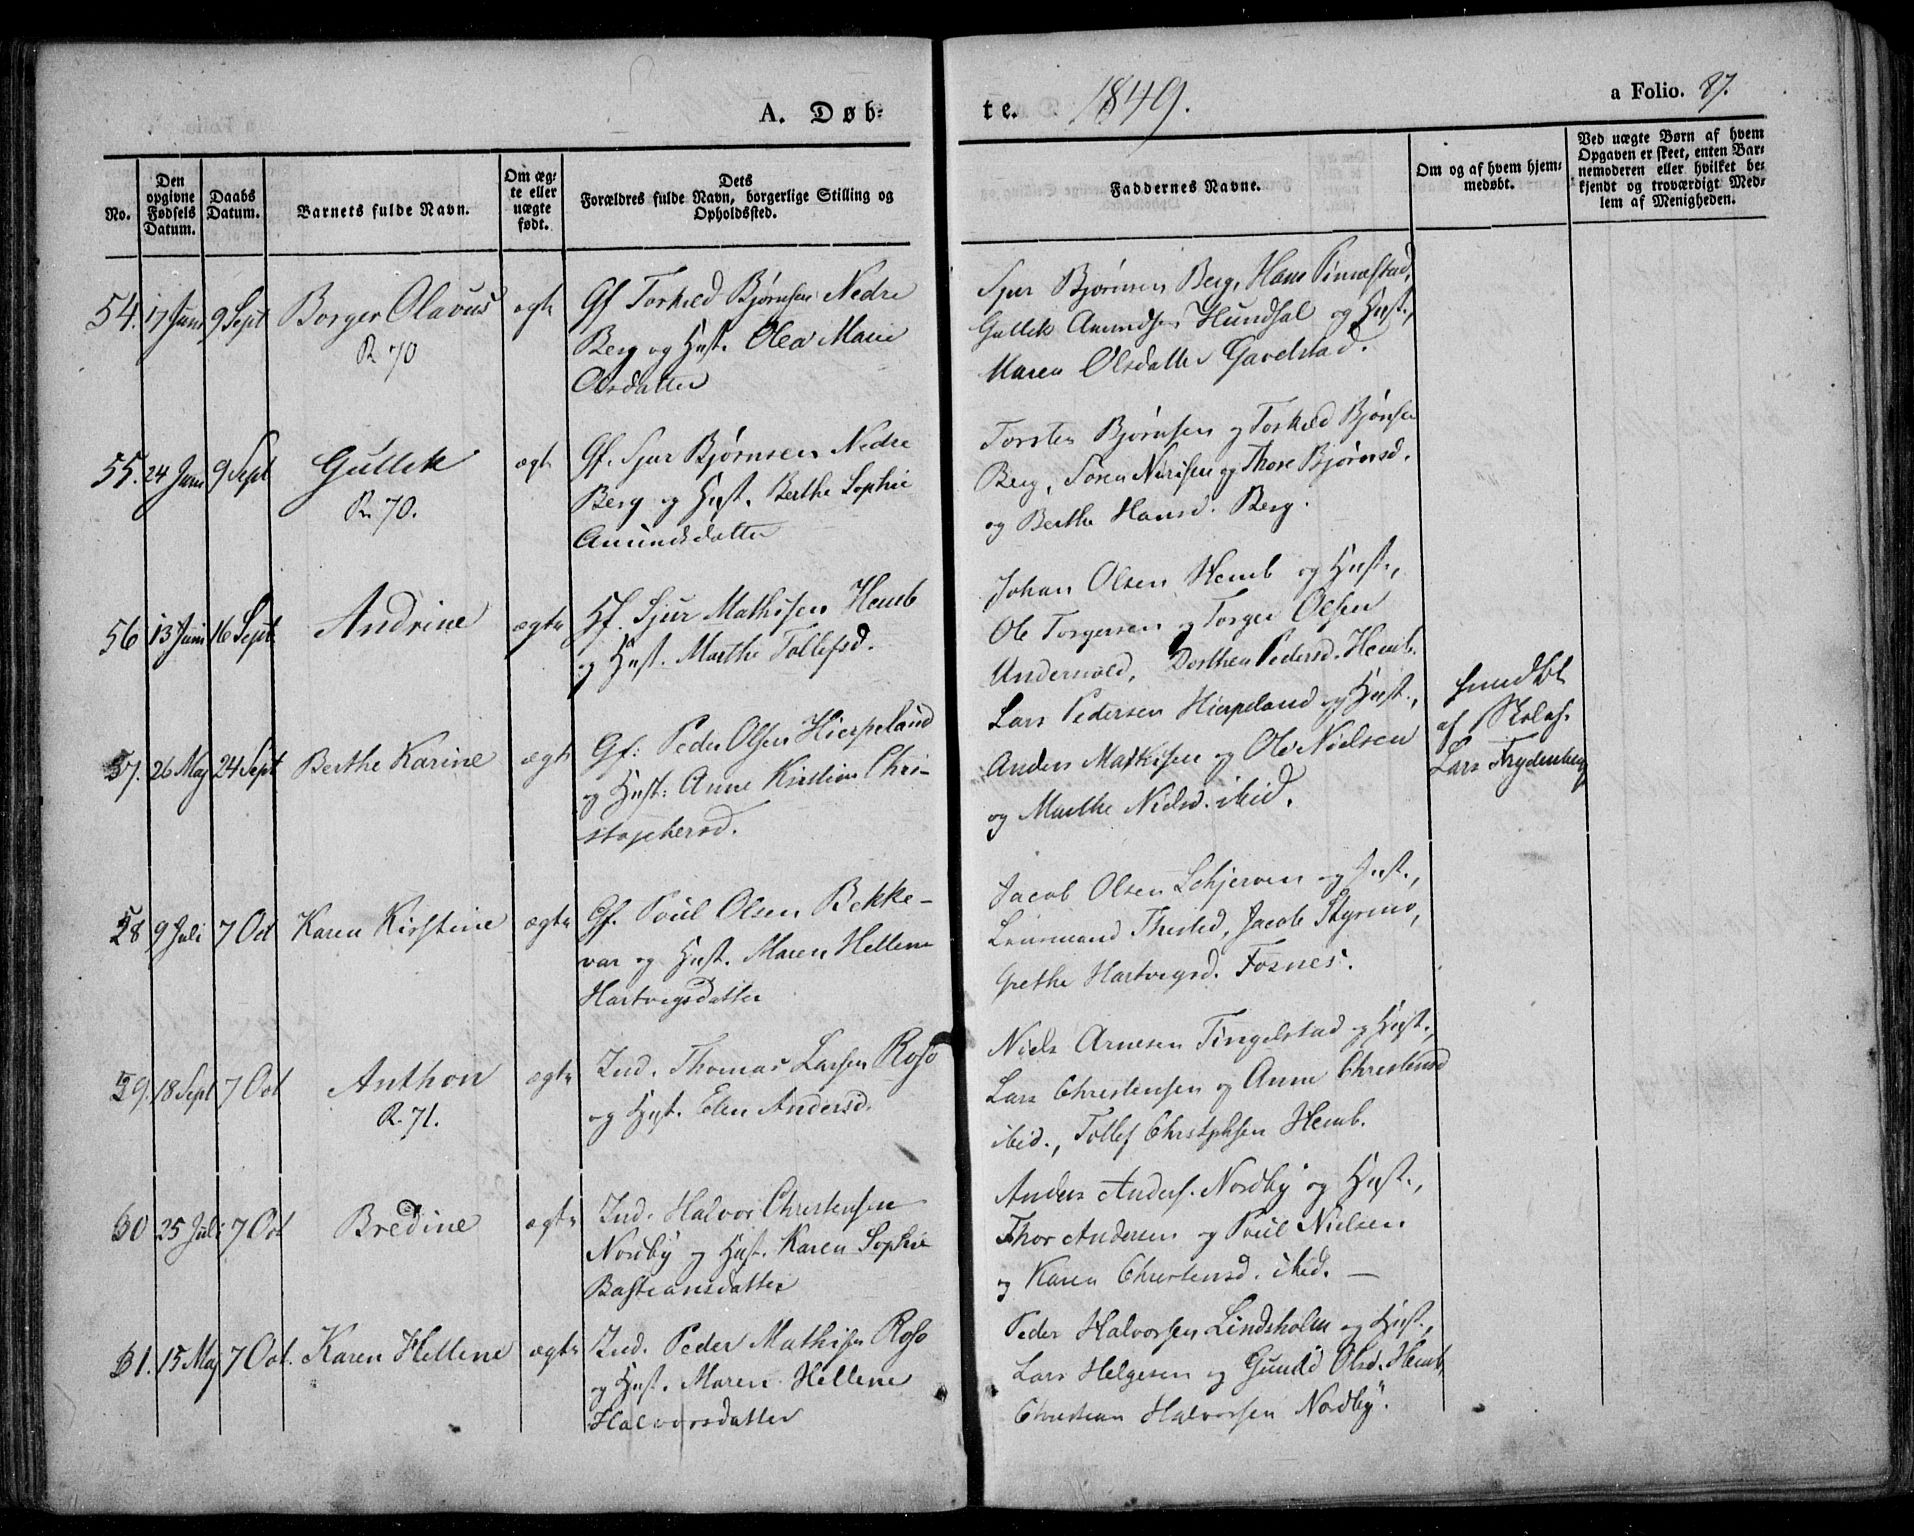 A. Døb-
te. 1849.
a Folio. 87.
No.
Den
opgivne
Fødsels
Datum.
Daabs
Datum.
Barnets fulde Navn.
Om æg-
te eller
uægte
født.
Dets
Forældres fulde Navn, borgerlige Stilling og
Opholdssted.
Faddernes Navne.
Om og af hvem hjem-
medøbt.
Ved uægte Børn af hvem
Opgaven er skeet, enten Bar-
nemoderen eller hvilket be-
kjendt og troværdigt Med-
lem af Menigheden.
54. 17 Juni 9 Sept Borger Olavus ægte
R 70
Gf Torkild Bjørnsen Nedre
Berg og Hust. Olea Marie
Olsdatter
Sjur Bjørnsen Berg, Hans
Gullik Amundsen Hundsal og Hust.,
Maren Olsdatter Gavelstad.
55. 24 Juni 9 Sept Gullik ægte
R. 70.
Gf. Sjur Bjørnsen Nedre
Berg og Hust. Berthe Sophie
Amundsdatter
Torsten Bjørnsen og Torkild Bjønsen
Berg, Søren og Thore Bjørnsd.
og Berthe Hansd. Berg.
56 13 Juni 16 Sept Andrine ægte
Hf. Sjur Mathisen Hemb
og Hust. Marthe Tollefsd.
Johan Olsen Hemb og Hust.,
Ole Torgersen og Torger Olsen
Undersvold, Dorthea Pedersd. Hemb.
57. 26 Maj 24 Sept Berthe Karine ægte
Gf: Peder Olsen Hierpeland
og Hust: Anne Kirstine Chri-
stophersd.
Lars Pedersen Hierpeland og Hust.,
Anders Mathisen og Ole Nielsen
og Marthe Nielsd. ibid.
hiemdbt
af Skolef.
Lars Frydenberg
58 9 Juli 7 Oct Karen Kirstine ægte
Gf. Poul Olsen Bekke-
var og Hust. Maren Hellene
Hartvigsdatter
Jacob Olsen Schjerven og Hust.,
Lensmand Thisted, Jacob Styrmo,
Grethe Hartvigsd. Fosnes.
59. 18 Sept 7 Oct Anthon ægte
R. 71.
Ind. Thomas Larsen Roso
og Hust. Elen Andersd.
Niels Arnesen Tingelstad og Hust.,
Lars Christensen og Anne Christensd
ibid., Tollef Christphsen Hemb.
60 25 Juli 7 Oct Bredine ægte
Ind. Halvor Christensen
Nordby og Hust. Karen Sophie
Bastiansdatter
Anders Anders. Nordby og Hust.,
Thor Andersen og Poul Nielsen
og Karen Christensd. ibid. —
61. 15 Maj 7 Oct. Karen Hellene ægte
Ind. Peder Mathisen Roso
og Hust. Maren Hellene
Halvorsdatter
Peder Halvorsen Lindsholm og Hust.,
Lars Helgesen og Gunild Olsd. Hemb,
Christian Halvorsen Nordby.